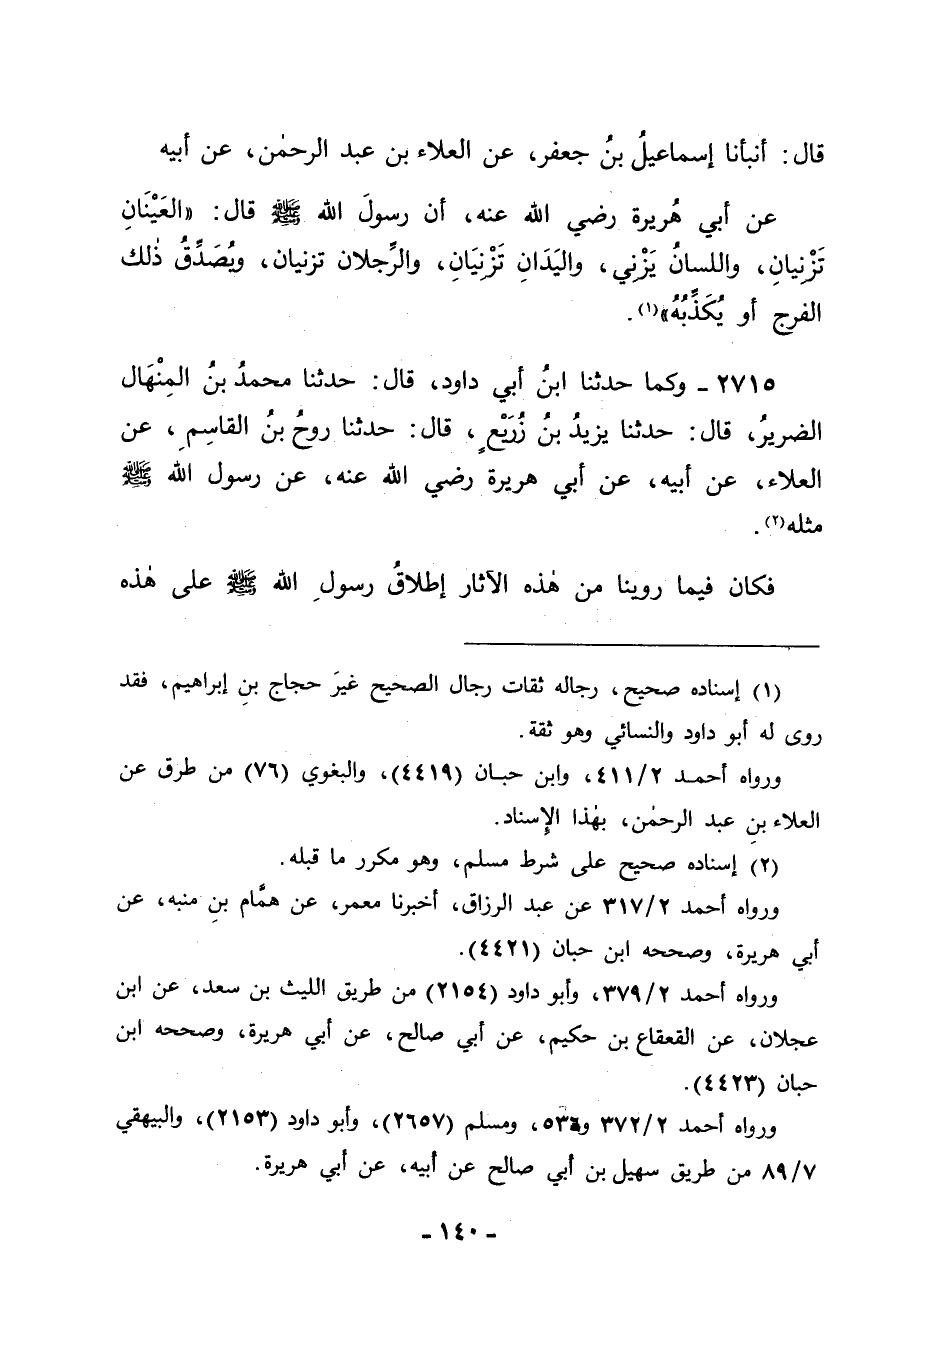 قال: أنبأنا إسماعيلُ بنُ جعفر، عن العلاء بن عبد الرحمٰن، عن أبيه
عن أبي هُريرة رضي الله عنه، أن رسولَ الله ﷺ قال: «العَيْنَانِ
تَزْنِيانِ، واللسانُ يَزْنِي، واليَدَانِ تَزْنِيَانِ، والرِّجلان تزنيان، ويُصَدِّقُ ذٰلك
الفرج أو يُكَذِّبُهُ»(١).
٢٧١٥ ـ وكما حدثنا ابنُ أبي داود، قال: حدثنا محمدُ بنُ المِنْهَال
الضريرُ، قال: حدثنا يزيدُ بنُ زُرَيْعٍ، قال: حدثنا روحُ بنُ القاسِمِ، عن
العلاء، عن أبيه، عن أبي هريرة رضي الله عنه، عن رسول الله ﷺ
مثله(٢).
فكان فيما روينا من هٰذه الآثار إطلاقُ رسولِ الله ﷺ على هٰذه
(١) إسناده صحيح، رجاله ثقات رجال الصحيح غيرَ حجاج بنِ إبراهيم، فقد
روى له أبو داود والنسائي وهو ثقة.
ورواه أحمـد ٤١١/٢، وابن حبـان (٤٤١٩)، والبغوي (٧٦) من طرق عن
العلاء بنِ عبد الرحمٰن، بهٰذا الإِسناد.
(٢) إسناده صحيح على شرط مسلم، وهو مكرر ما قبله.
ورواه أحمد ٣١٧/٢ عن عبد الرزاق، أخبرنا معمر، عن همَّام بنِ منبه، عن
أبي هريرة، وصححه ابن حبان (٤٤٢١).
ورواه أحمد ٣٧٩/٢، وأبو داود (٢١٥٤) من طريق الليث بن سعد، عن ابن
عجلان، عن القعقاع بن حكيم، عن أبي صالح، عن أبي هريرة، وصححه ابن
حبان (٤٤٢٣).
ورواه أحمد ٣٧٢/٢ و٥٣٦، ومسلم (٢٦٥٧)، وأبو داود (٢١٥٣)، والبيهقي
٨٩/٧ من طريق سهيل بن أبي صالح عن أبيه، عن أبي هريرة.
- ١٤٠ -